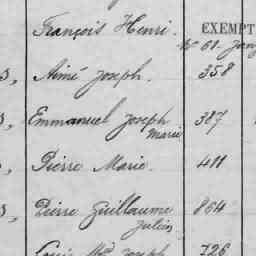 François Henri.
EXEMPT
Nº 61. Janv
3, Aimé Joseph. 358
3, Emmanuel Joseph 387
Marie
3, Pierre Marie. 411
3, Pierre Guillaume 864
Julien
Louis Joseph 726